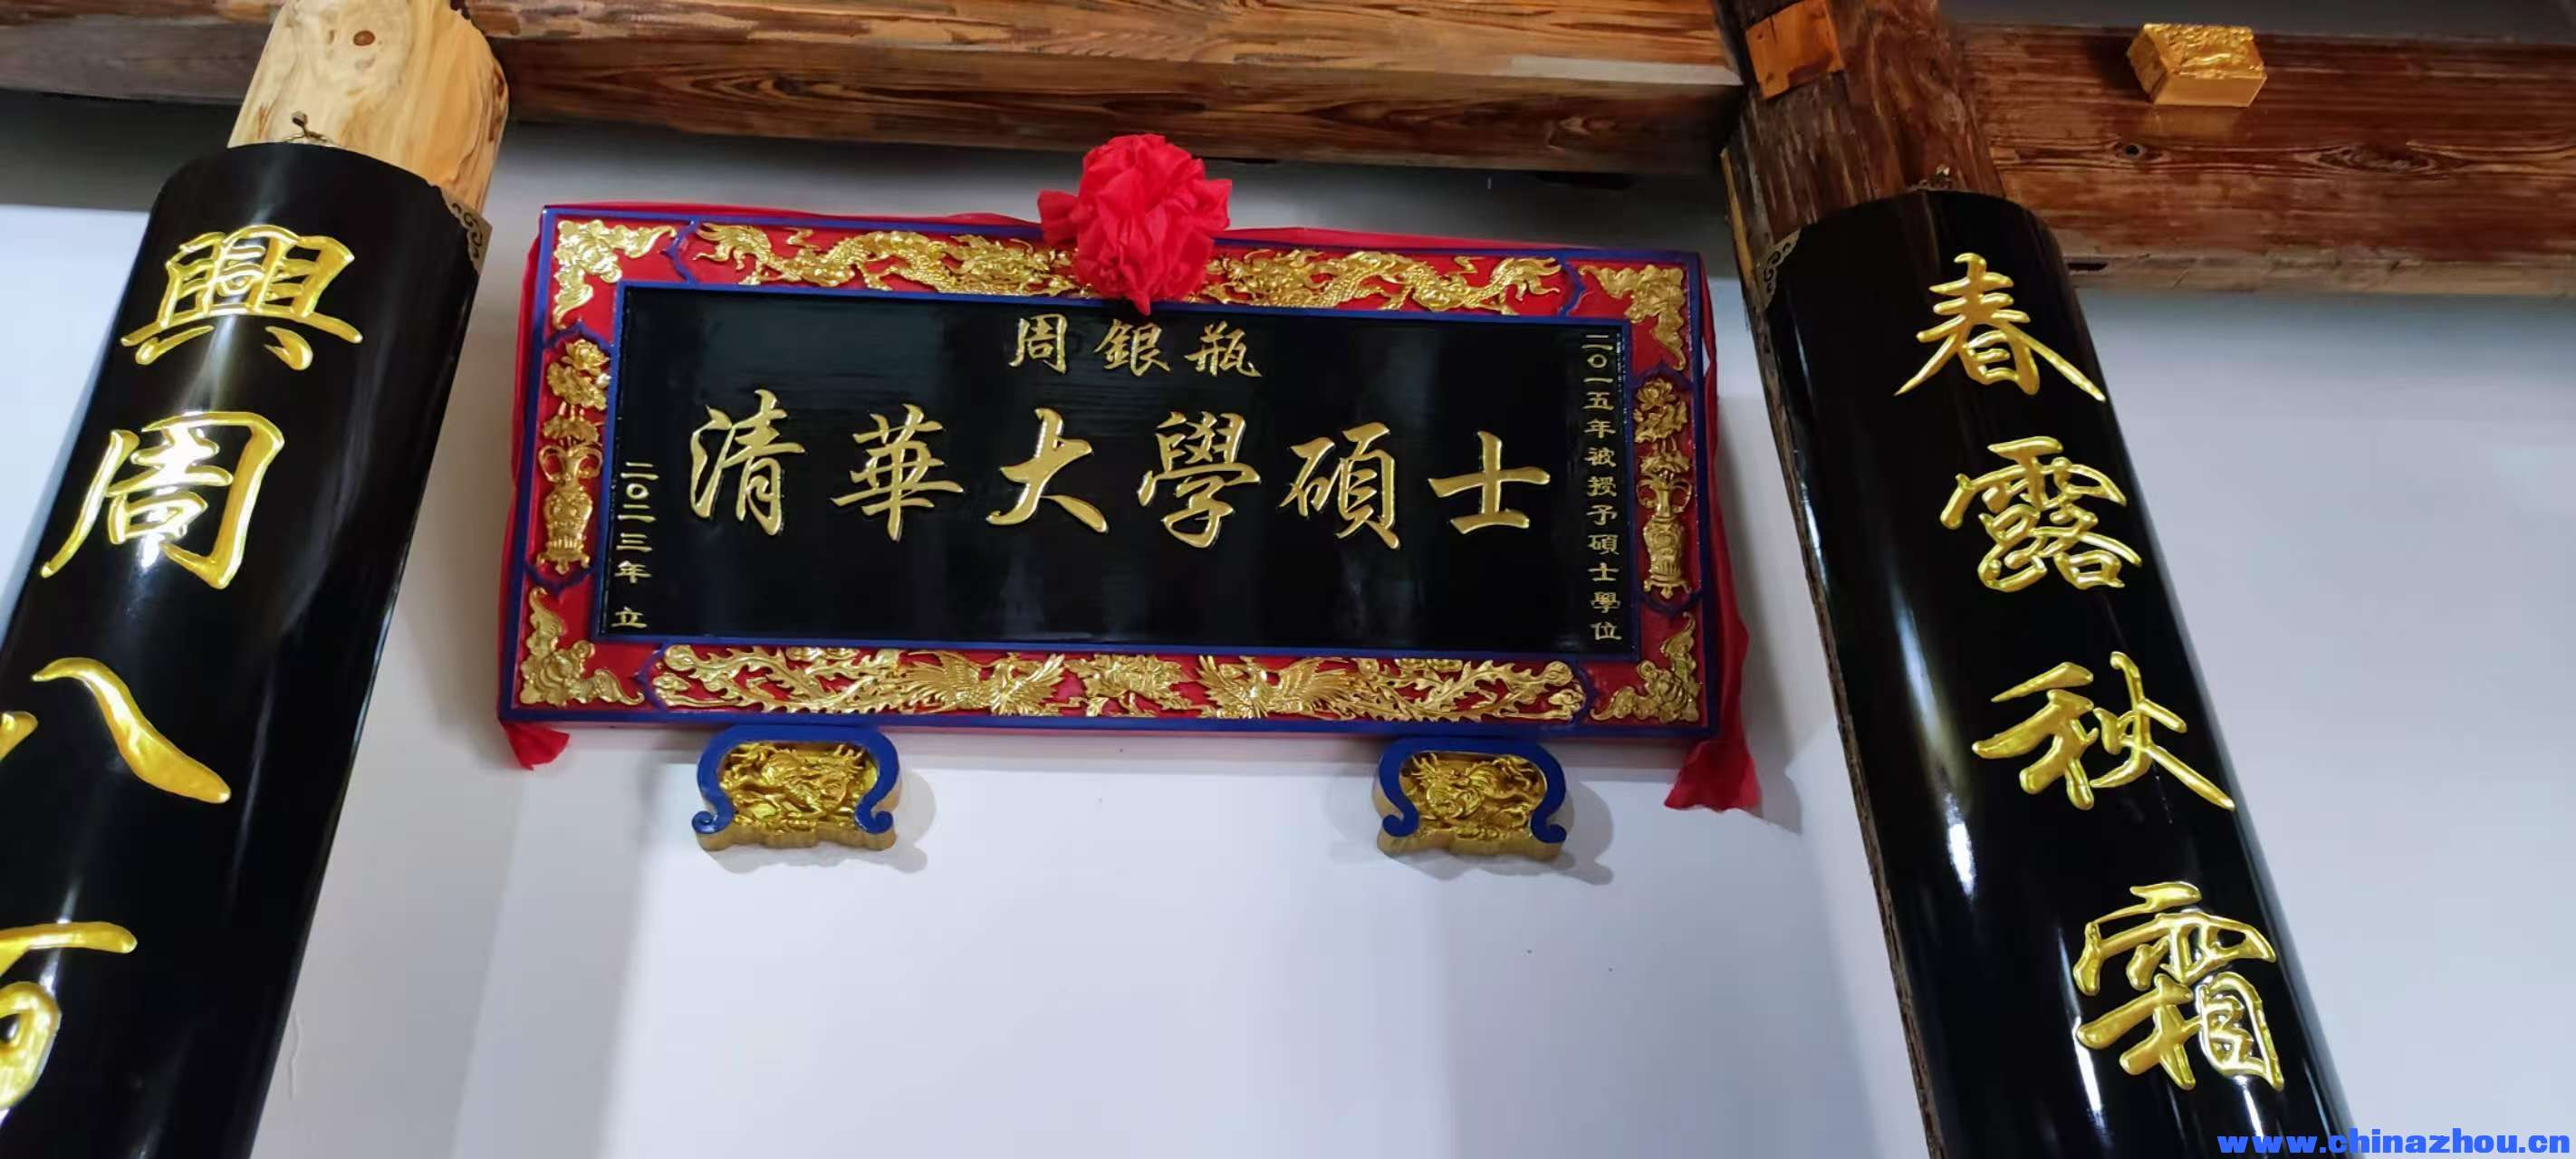 周銀瓶
清華大學碩士
二〇一五年被授予碩士學位
二〇二三年 立
春露秋霜
興周八百
www.chinazhou.cn